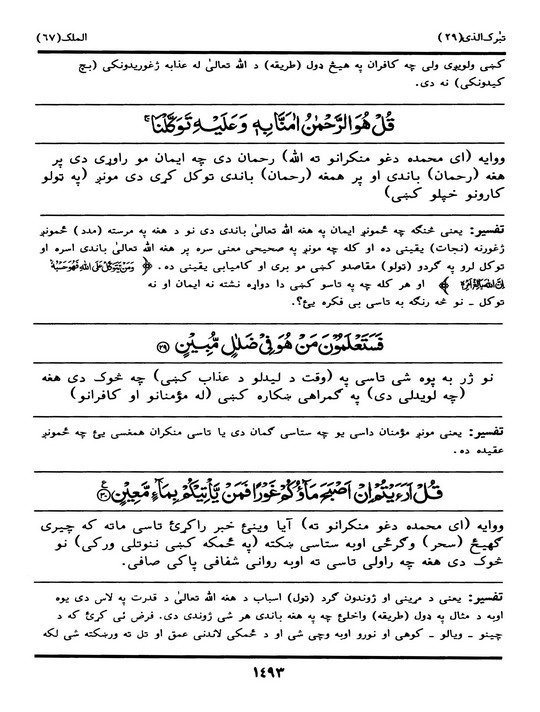 تبٰرک الذی(۲۹) الملک(۶۷)
کښی ولویږی ولی چه کافران په هیڅ ډول (طریقه) د الله تعالیٰ له عذابه ژغوریدونکی (بچ
کیدونکی) نه دی.
قُلْ هُوَ الرَّحْمٰنُ اٰمَنَّا بِهٖ وَعَلَیْهِ تَوَكَّلْنَا ۚ
ووایه (ای محمده دغو منکرانو ته الله) رحمان دی چه ایمان مو راوړی دی پر
هغه (رحمان) باندی او پر همغه (رحمان) باندی توکل کړی دی مونږ (په ټولو
کارونو خپلو کښی)
تفسیر: یعنی څنګه چه ځمونږ ایمان په هغه الله تعالیٰ باندی دی نو د هغه په مرسته (مدد) ځمونږ
ژغورنه (نجات) یقینی ده او کله چه مونږ په صحیحی معنی سره پر هغه الله تعالیٰ باندی اسره او
توکل لرو په ګردو (ټولو) مقاصدو کښی مو بری او کامیابی یقینی ده. ﴿ وَمَنْ يَّتَوَكَّلْ عَلَى اللّٰهِ فَهُوَ حَسْبُهٗ
﴾ او هر کله چه په تاسو کښی دا دواړه نشته نه ایمان او نه
توکل ـ نو څه رنګه به تاسی بی فکره یئ؟.
فَسَتَعْلَمُوْنَ مَنْ هُوَ فِیْ ضَلٰلٍ مُّبِیْنٍ ﴿۲۹﴾
نو ژر به پوه شی تاسی په (وقت د لیدلو د عذاب کښی) چه څوک دی هغه
(چه لویدلی دی) په ګمراهی ښکاره کښی (له مؤمنانو او کافرانو)
تفسیر: یعنی مونږ مؤمنان داسی یو چه ستاسی ګمان دی یا تاسی منکران همغسی یئ چه ځمونږ
عقیده ده.
قُلْ اَرَءَیْتُمْ اِنْ اَصْبَحَ مَآؤُكُمْ غَوْرًا فَمَنْ یَّاْتِیْكُمْ بِمَآءٍ مَّعِیْنٍ ﴿۳۰﴾
ووایه (ای محمده دغو منکرانو ته) آیا وینئ خبر راکړئ تاسی ماته که چیری
ګهیځ (سحر) وګرځی اوبه ستاسی ښکته (په ځمکه کښی ننوتلی ورکی) نو
څوک دی هغه چه راولی تاسی ته اوبه روانی شفافی پاکی صافی.
تفسیر: یعنی د مړینی او ژوندون ګرد (ټول) اسباب د هغه الله تعالیٰ د قدرت په لاس دی یوه
اوبه د مثال په ډول (طریقه) واخلئ چه په هغه باندی هر شی ژوندی دی. فرض ئی کړئ که د
چینو ـ ویالو ـ کوهی او نورو اوبه وچی شی او د ځمکی لاندنی عمق او تل ته ورښکته شی لکه
۱٤۹۳